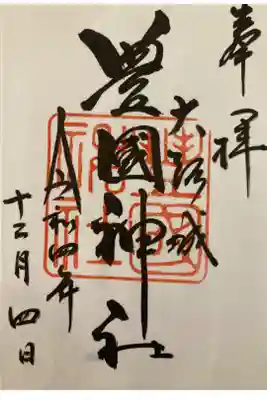 奉拝
大阪城
豊國神社
令和四年
十二月四日